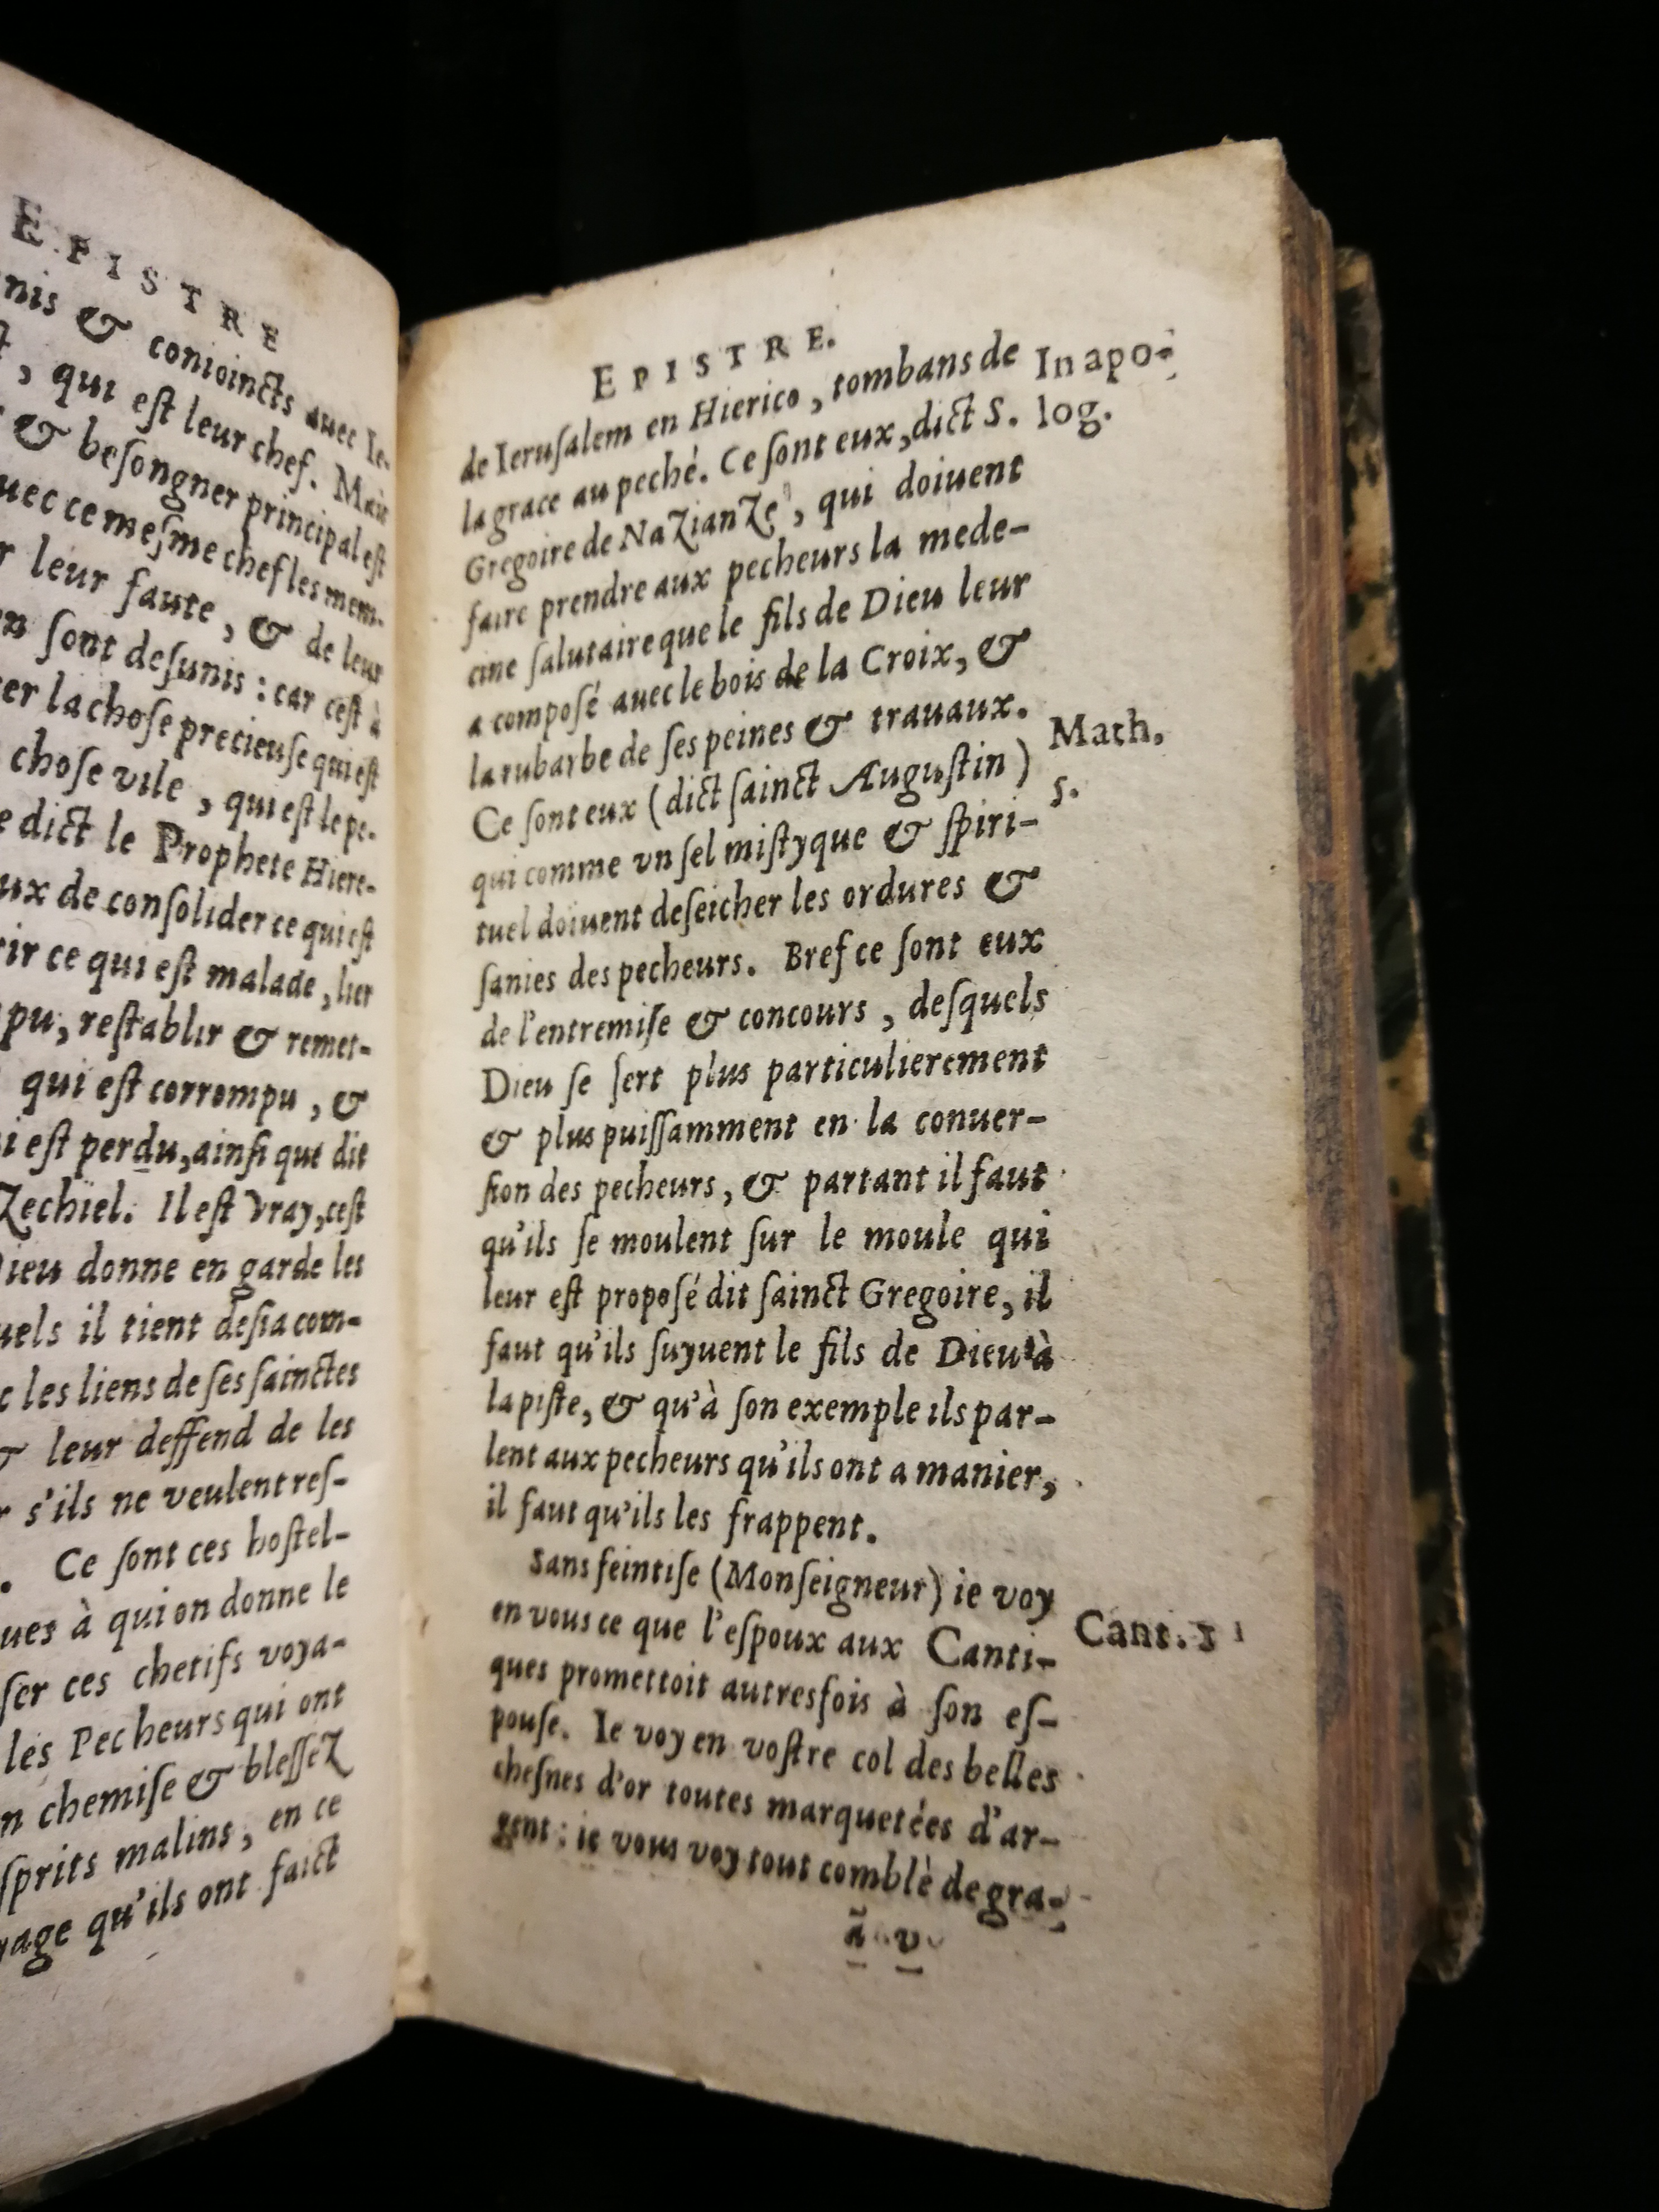 EPISTRE
nis & conioincts auec Ie-
, qui eſt leur chef. Mais
& beſongner principal eſt
uec ce meſme chef les mem-
r leur faute, & de leur
en ſont deſunis : car ceſt à
er la choſe precieuſe qui eſt
choſe vile, qui eſt le pe-
e dict le Prophete Hiere-
ux de conſolider ce qui eſt
rir ce qui eſt malade, lier
pu, reſtablir & remet-
qui eſt corrompu, &
i eſt perdu, ainſi que dit
Zechiel. Il eſt vray, ceſt
Dieu donne en garde les
uels il tient deſia com-
c les liens de ſes ſainctes
& leur deffend de les
r s'ils ne veulent reſ-
. Ce ſont ces hoſtel-
ues à qui on donne le
ſer ces chetifs voya-
les Pecheurs qui ont
n chemiſe & bleſſeZ
ſprits malins, en ce
yage qu'ils ont faict
EPISTRE.
de Ieruſalem en Hierico, tombans de
la grace au peché. Ce ſont eux, dict S.
Gregoire de NaZianZe, qui doiuent
faire prendre aux pecheurs la mede-
cine ſalutaire que le fils de Dieu leur
a compoſé auec le bois de la Croix, &
la rubarbe de ſes peines & trauaux.
Ce ſont eux (dict ſainct Auguſtin)
qui comme vn ſel miſtyque & ſpiri-
tuel doiuent deſeicher les ordures &
ſanies des pecheurs. Bref ce ſont eux
de l'entremiſe & concours, deſquels
Dieu ſe ſert plus particulierement
& plus puiſſamment en la conuer-
ſion des pecheurs, & partant il faut
qu'ils ſe moulent ſur le moule qui
leur eſt propoſé dit ſainct Gregoire, il
faut qu'ils ſuyuent le fils de Dieu à
la piſte, & qu'à ſon exemple ils par-
lent aux pecheurs qu'ils ont a manier,
il faut qu'ils les frappent.
Sans feintiſe (Monſeigneur) ie voy
en vous ce que l'eſpoux aux Canti-
ques promettoit autresfois à ſon eſ-
pouſe. Ie voy en voſtre col des belles
cheſnes d'or toutes marquetées d'ar-
gent : ie vous voy tout comblè de gra-
ã v
In apo-
log.
Math.
5.
Cant. 1